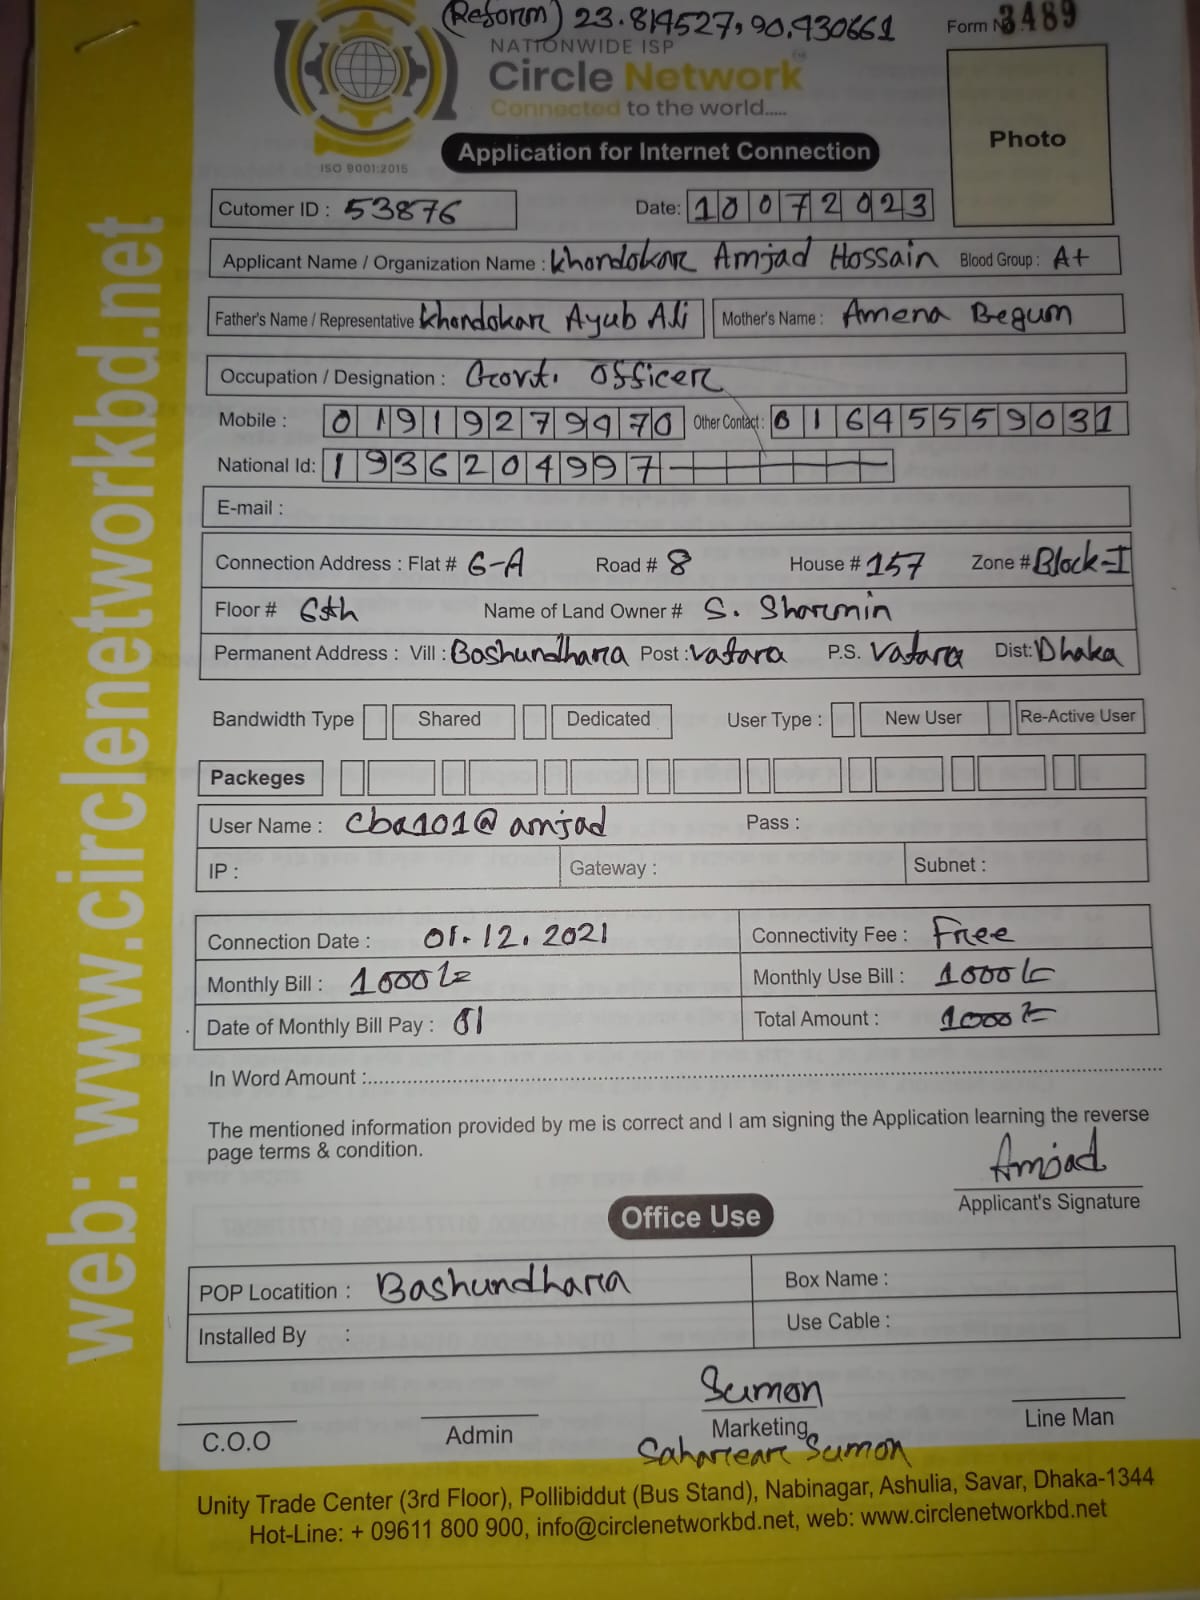 (Reform) 23.814527, 90.430661
Form N 3489
NATIONWIDE ISP
Circle Network
Connected to the world.....
ISO 9001:2015
Application for Internet Connection
Photo
Cutomer ID : 53876 Date: 10072023
Applicant Name / Organization Name : Khondokar Amjad Hossain Blood Group : A+
Father's Name / Representative Khondokar Ayub Ali Mother's Name : Amena Begum
Occupation / Designation : Govt. Officer
Mobile : 01919279970 Other Contact : 01645559031
National Id: 1936204997
E-mail :
Connection Address : Flat # 6-A Road # 8 House # 157 Zone # Block-I
Floor # 6th Name of Land Owner # S. Sharmin
Permanent Address : Vill : Bashundhara Post : Vatara P.S. Vatara Dist: Dhaka
Bandwidth Type Shared Dedicated User Type : New User Re-Active User
Packeges
User Name : cba101@amjad Pass :
IP : Gateway : Subnet :
Connection Date : 01.12.2021 Connectivity Fee : Free
Monthly Bill : 1000/= Monthly Use Bill : 1000/=
Date of Monthly Bill Pay : 01 Total Amount : 1000/=
In Word Amount :
The mentioned information provided by me is correct and I am signing the Application learning the reverse
page terms & condition.
Amjad
Applicant's Signature
Office Use
POP Locatition : Bashundhara Box Name :
Installed By : Use Cable :
Sumon
C.O.O Admin Marketing Line Man
Saharear Sumon
Unity Trade Center (3rd Floor), Pollibiddut (Bus Stand), Nabinagar, Ashulia, Savar, Dhaka-1344
Hot-Line: + 09611 800 900, info@circlenetworkbd.net, web: www.circlenetworkbd.net
web: www.circlenetworkbd.net